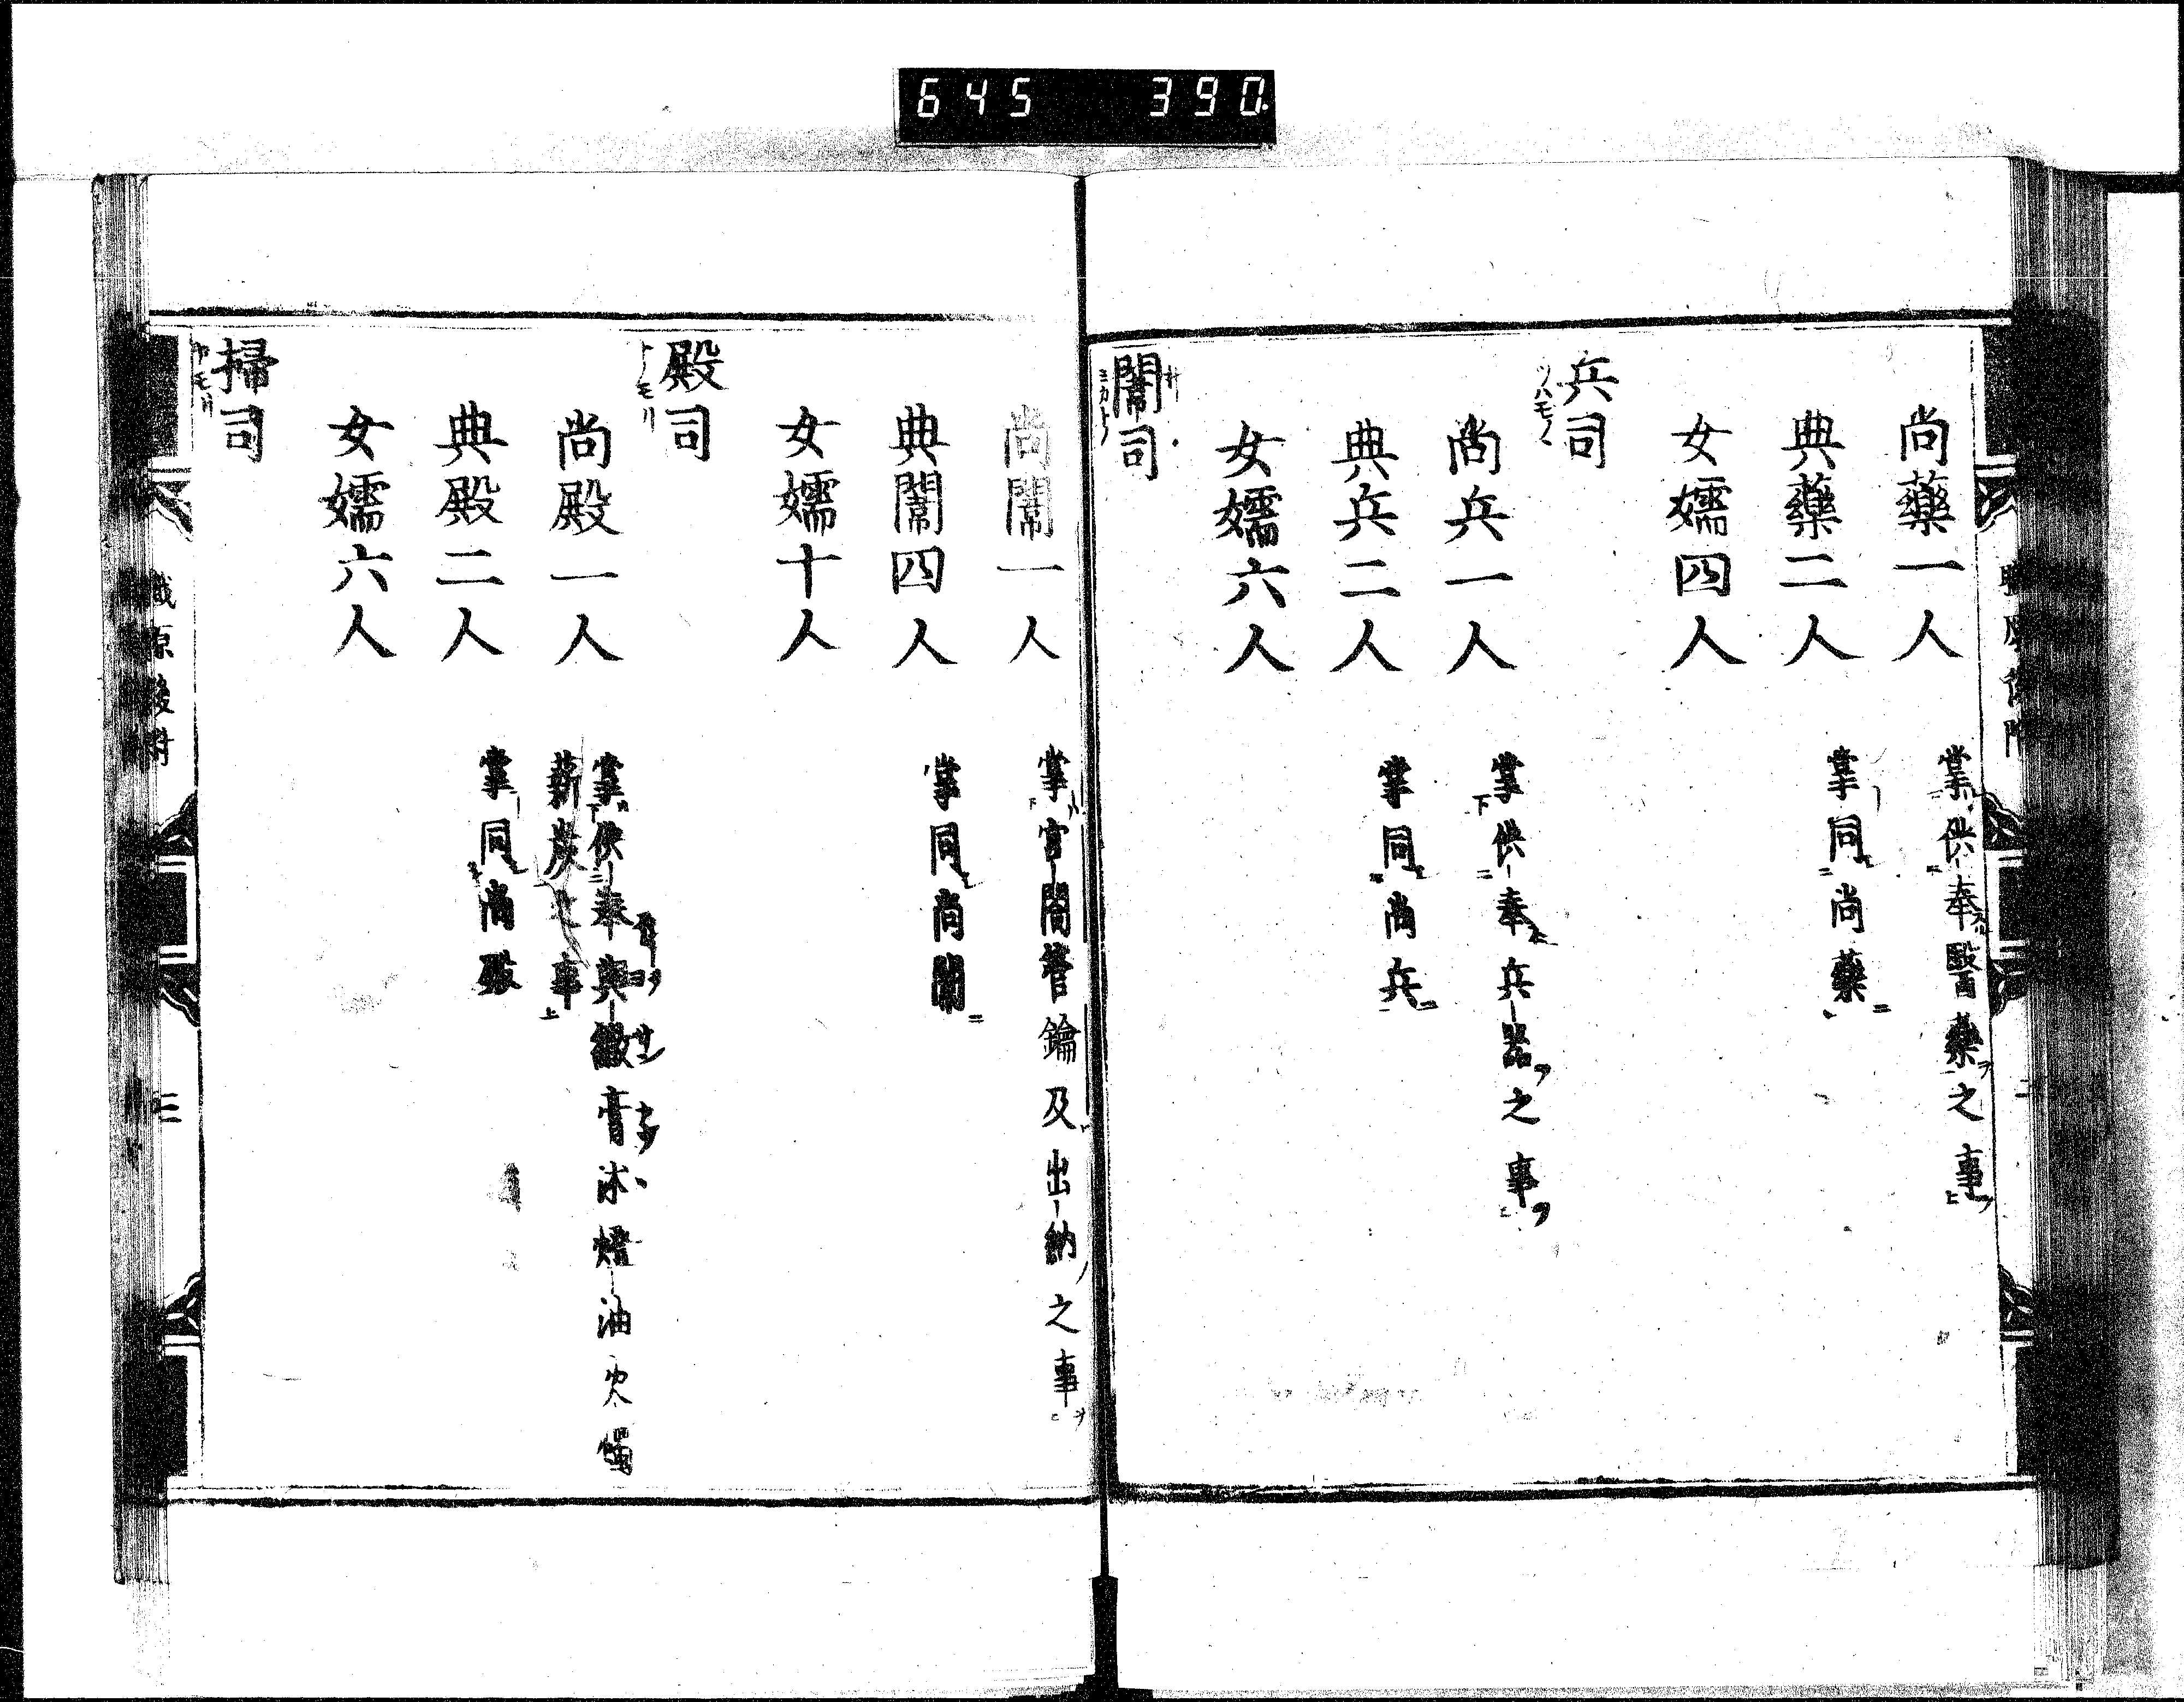 645 390
尚藥一人 掌供奉醫藥之事
典藥二人 掌同尚藥
女嬬四人
兵司 ツハモノ
尚兵一人 掌供奉兵器之事
典兵二人 掌同尚兵
女嬬六人
闈司 ミカト
尚闈一人 掌宮閤管鑰及出納之事
典闈四人 掌同尚闈
女嬬十人
殿司 トノモリ
尚殿一人 掌供奉輿繖膏沐燈油火燭
薪炭之事
典殿二人 掌同尚殿
女嬬六人
掃司
職原後附